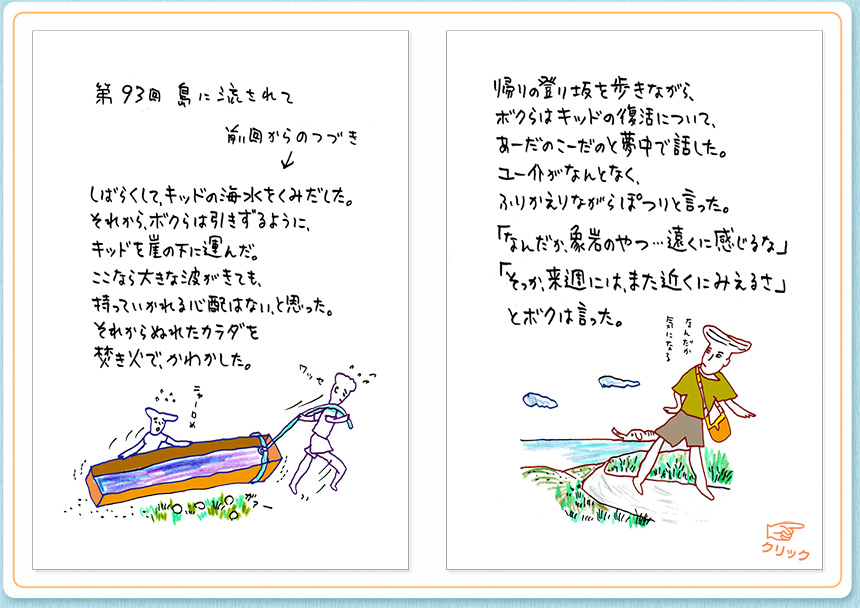 第93回 島に流されて
前回からのつづき
しばらくして、キッドの海水をくみだした。
それから、ボクらは引きずるように、
キッドを崖の下に運んだ。
ここなら大きな波がきても、
持っていかれる心配はない、と思った。
それからぬれたカラダを
焚き火で、かわかした。
ワッセ
ガァー
帰りの登り坂を歩きながら、
ボクらはキッドの復活について、
あーだのこーだのと夢中で話した。
ユー介がなんとなく、
ふりかえりながらぽつりと言った。
「なんだか、象岩のやつ…遠くに感じるな」
「そっか、来週には、また近くにみえるさ」
とボクは言った。
なんだか
気になる
クリック